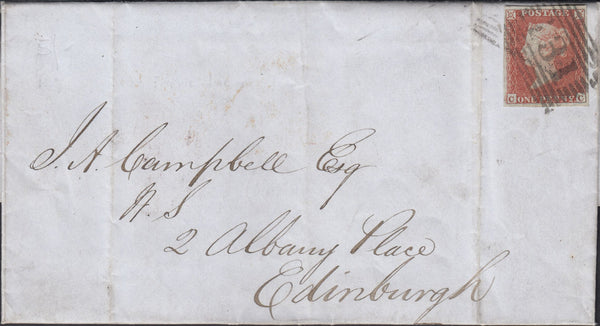 POSTAGE
131
C C
ONE PENNY
J. A. Campbell Esq
W. S
2 Albany Place
Edinburgh